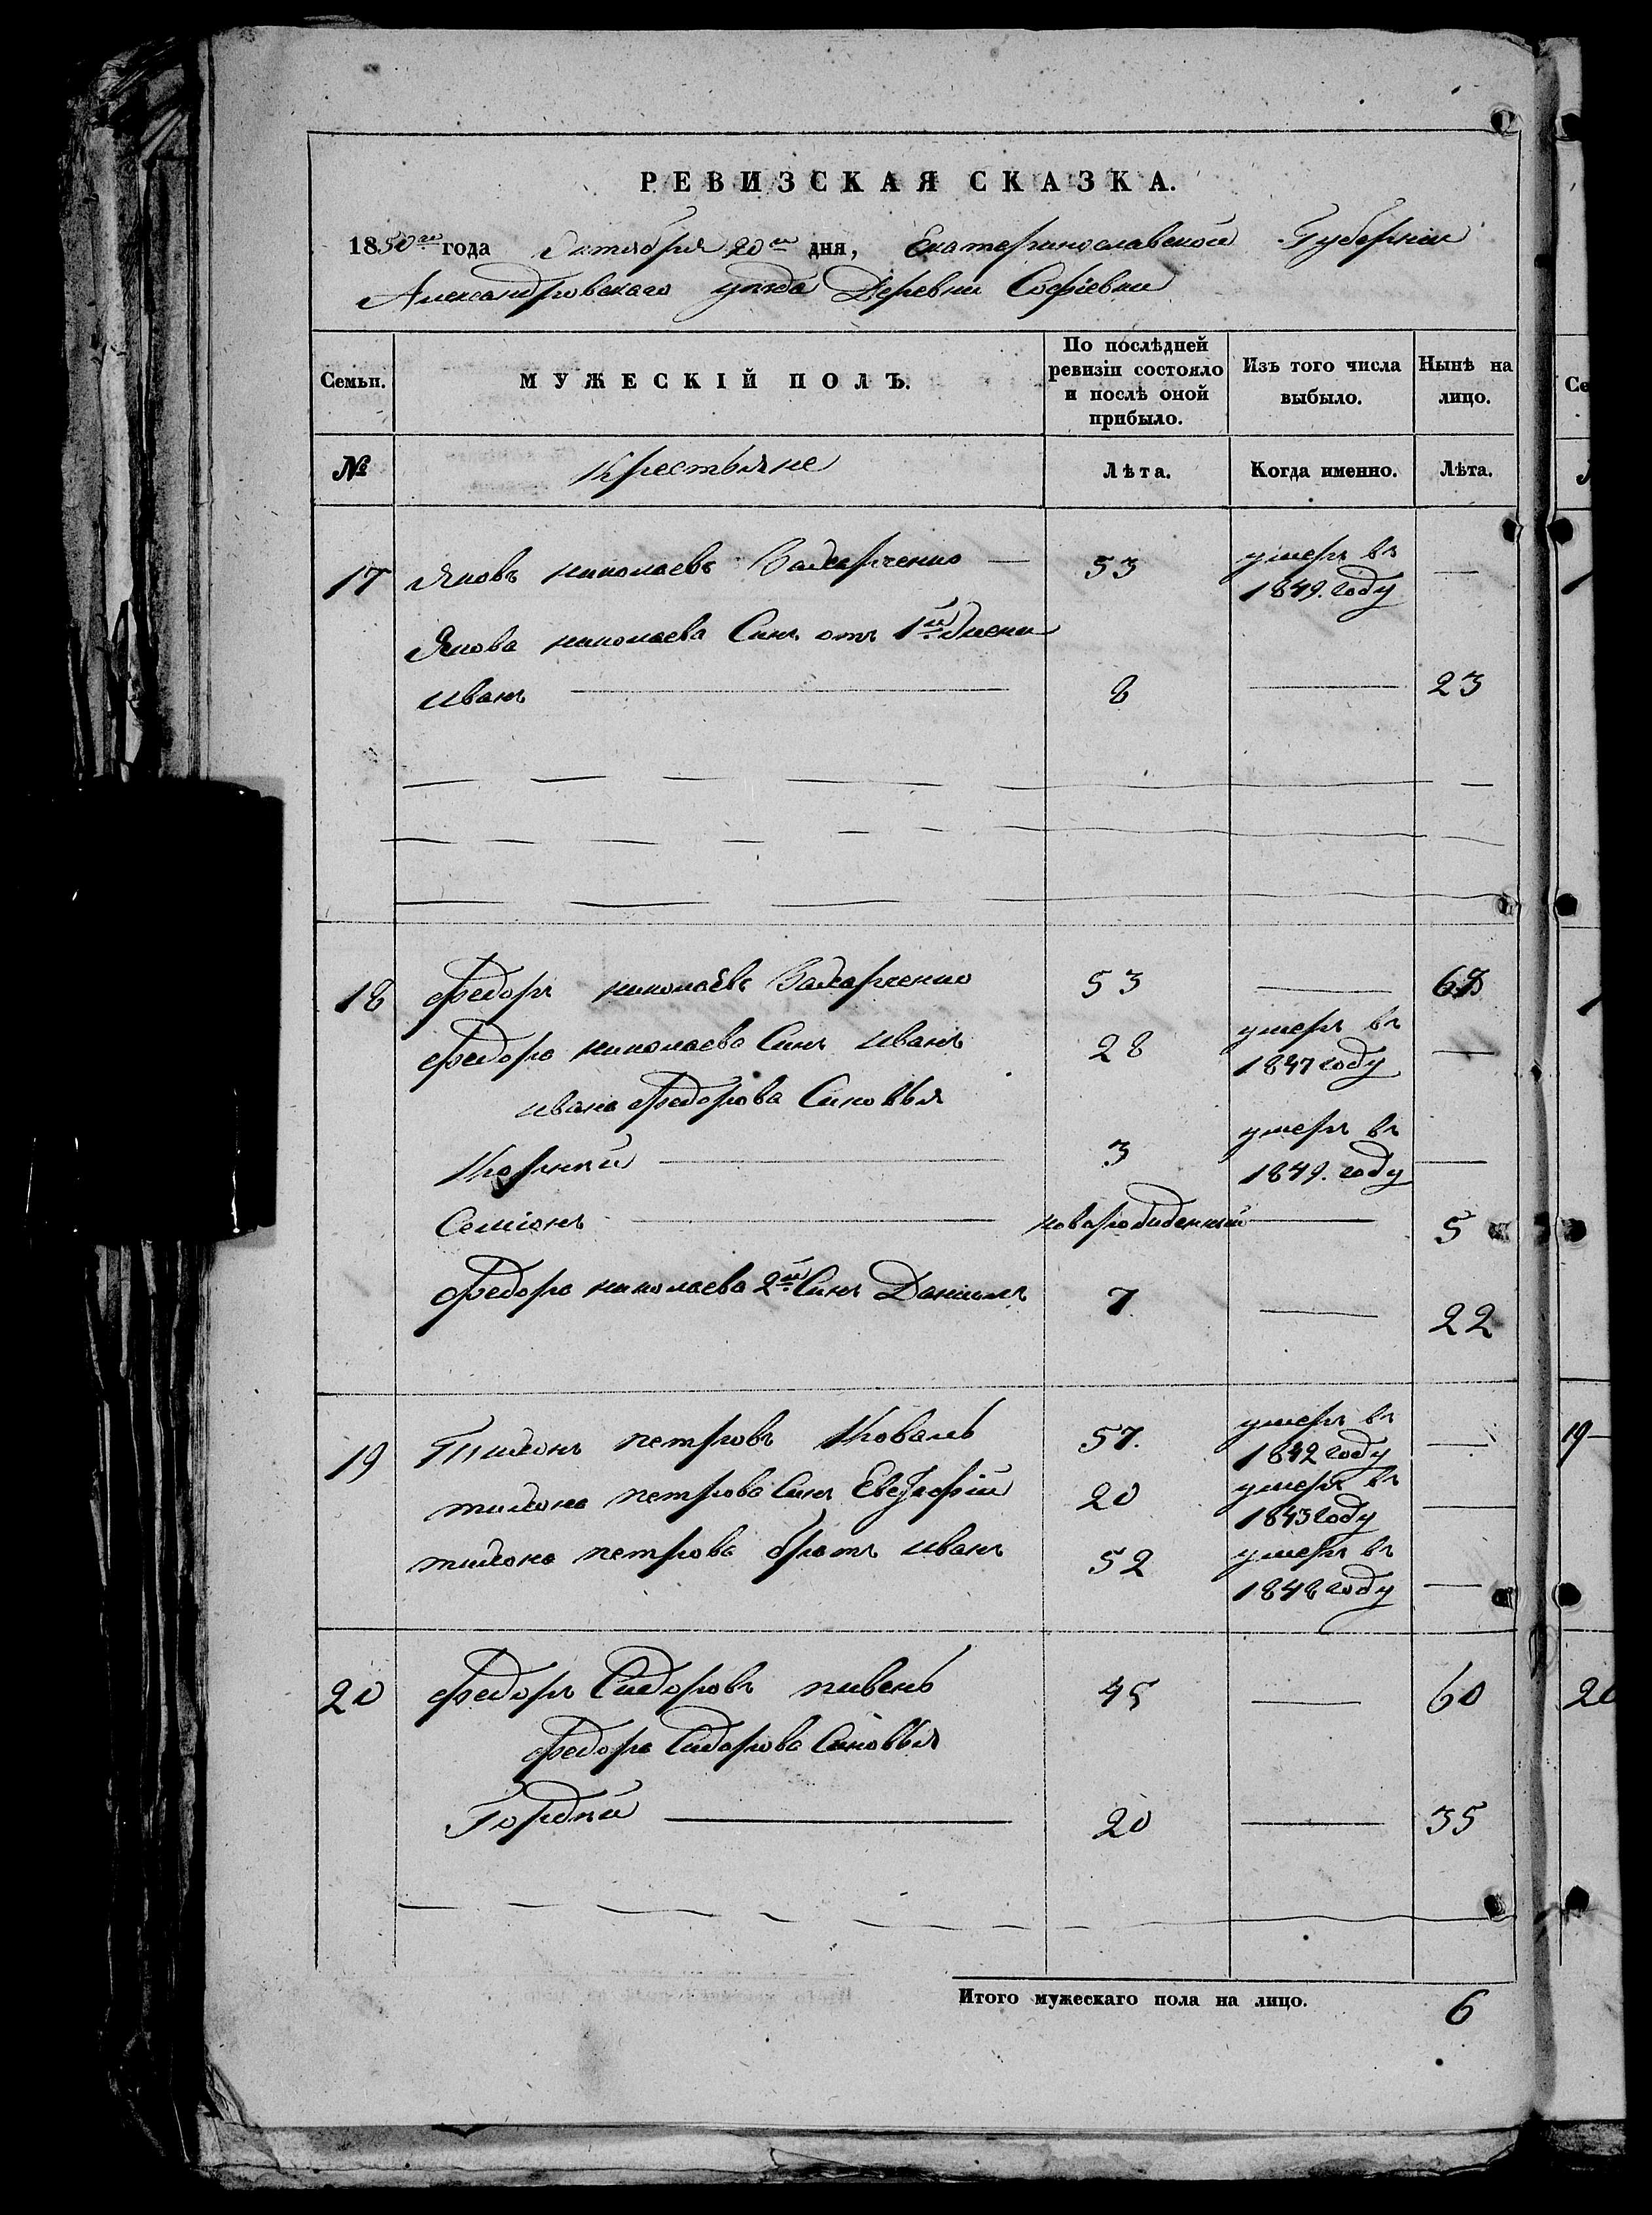 РЕВИЗСКАЯ СКАЗКА.
1850го года Октября 20го дня, Екатеринославской Губернии
Александровскаго уезда Деревни Софіевки
Семьи.
МУЖЕСКІЙ ПОЛЪ.
По послѣдней ревизіи состояло и послѣ оной прибыло.
Изъ того числа выбыло.
Нынѣ на лицо.
№
Крестьяне
Лѣта.
Когда именно.
Лѣта.
17 Яковъ николаевъ Захарченко — 53 умеръ въ 1849. году —
Якова николаева Синъ отъ 1й жени
иванъ — 8 — 23
18 Федоръ николаевъ Захарченко 53 — 68
Федора николаева Синъ иванъ 28 умеръ въ 1847 году —
ивана Федорова Синовья
Корнѣй — 3 умеръ въ 1849. году —
Семіонъ — новарожденный — 5
Федора николаева 2й Синъ Данилъ 7. — 22
19 Тихонъ петровъ Коваль 57. умеръ въ 1842 году —
тихона петрова Синъ 20 умеръ въ 1843 году —
тихона петрова братъ иванъ 52 умеръ въ 1848 году —
20 Федоръ Сидоровъ пивень 45 — 60
Федора Сидорова Синовья
Гордѣй — 20 — 35
Итого мужескаго пола на лицо. 6
Се
19
20